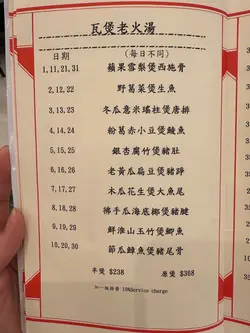 瓦煲老火湯
日期 (每日不同)
1,11,21,31 蘋果雪梨煲西施骨
2,12,22 野葛菜煲生魚
3,13,23 冬瓜意米瑤柱煲唐排
4,14,24 粉葛赤小豆煲鯪魚
5,15,25 銀杏腐竹煲豬肚
6,16,26 老黃瓜扁豆煲豬踭
7,17,27 木瓜花生煲大魚尾
8,18,28 佛手瓜海底椰煲豬腱
9,19,29 鮮淮山玉竹煲鯽魚
10,20,30 節瓜鱆魚煲豬尾骨
半煲 $238 原煲 $368
加一服務費 10%Service charge